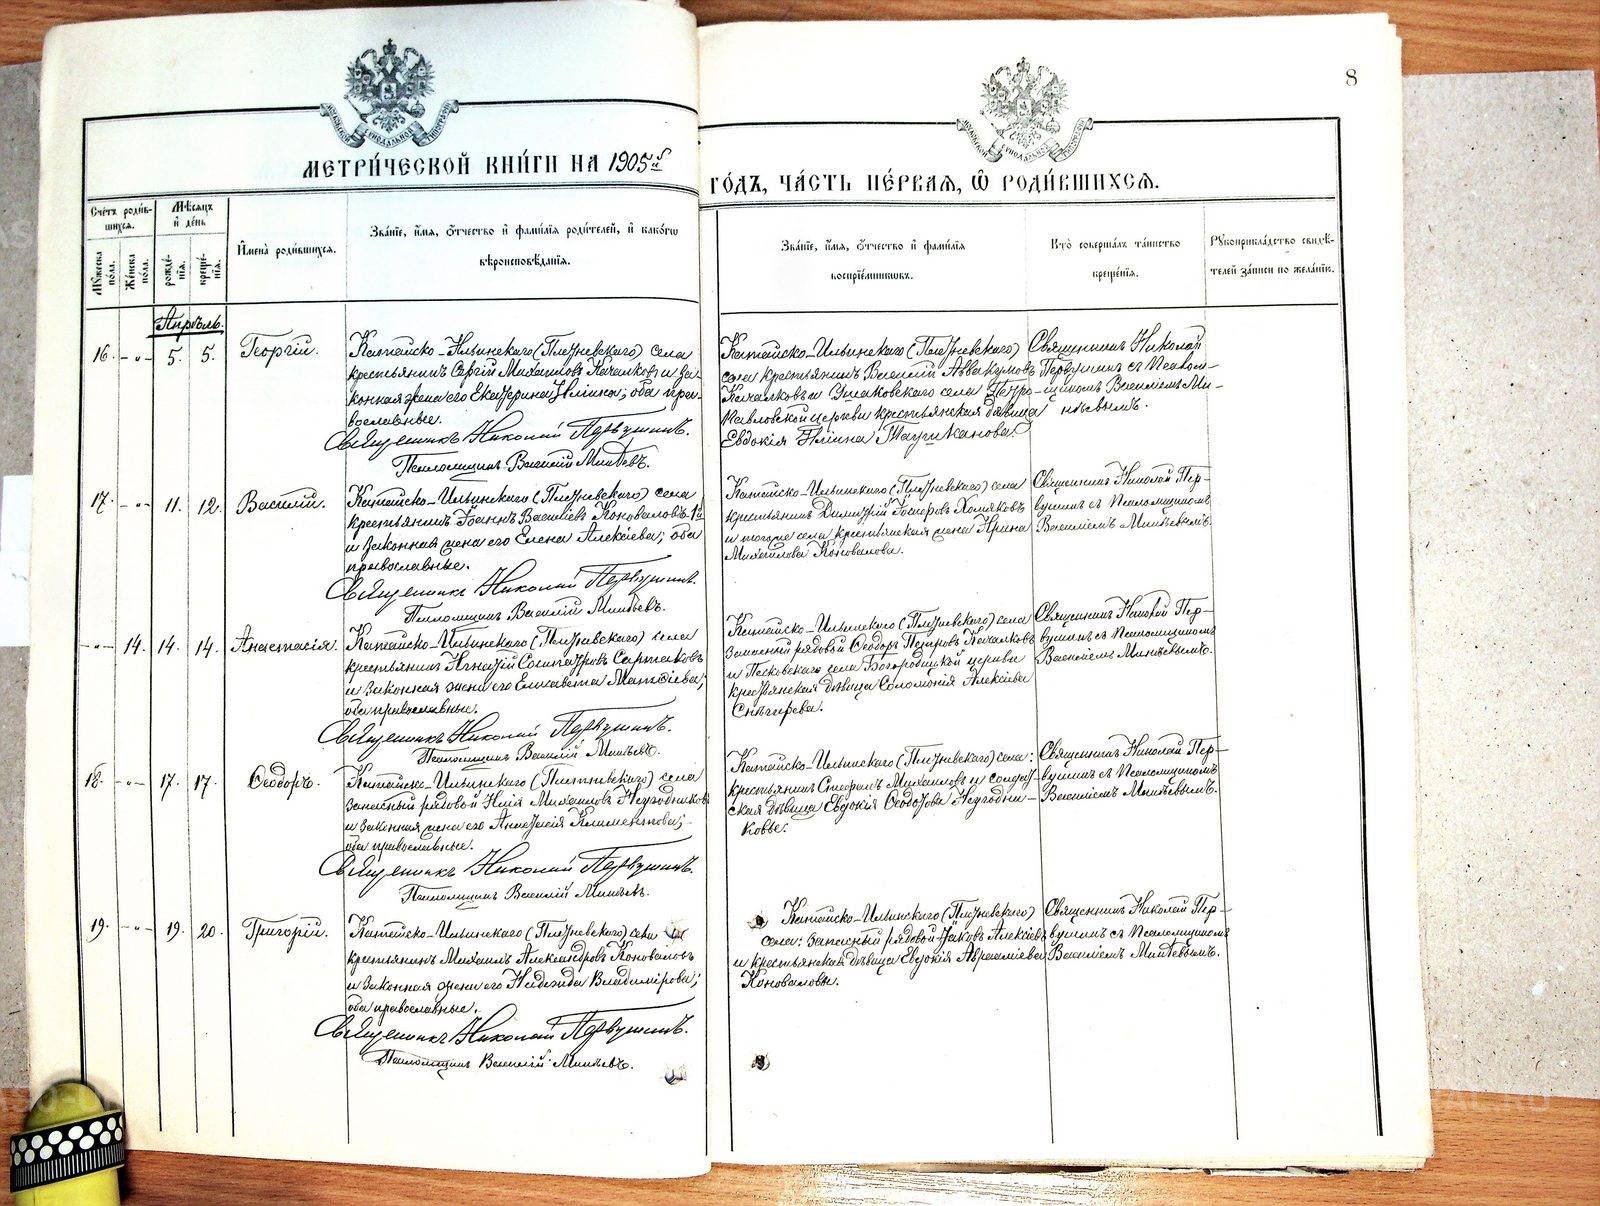 8
МОСКОВСКОЙ СѴНОДАЛЬНОЙ ТИПОГРАФІИ
МЕТРИ́ЧЕСКОЙ КНИ́ГИ НА 1905й
ГО́ДЪ, ЧА́СТЬ ПЕ́РВАЯ, Ѡ РОДИ́ВШИХСЯ.
Сче́тъ роди́в-
шихся.
Му́жеска по́ла.
Же́нска по́ла.
Мѣ́сяцъ
и де́нь
рожде́-
нія.
креще́-
нія.
Имена̀ роди́вшихся.
Зва́ніе, и́мя, о́тчество и фами́лія роди́телей, и како́гѡ
вѣроисповѣ́данія.
Зва́ніе, и́мя, о́тчество и фами́лія
воспріе́мникѡвъ.
Кто̀ соверша́лъ та́инство
креще́нія.
Рукоприкла́дство свидѣ́-
телей за́писи по жела́нію.
Апрѣль.
16. -"- 5. 5. Георгій.
Катайско-Ильинскаго (Плотневскаго) села
крестьянинъ Сергій Михаиловъ Качалковъ и за-
конная жена его Екатерина Иліина; оба пра-
вославные.
Священникъ Николай Первушинъ.
Псаломщикъ Василій Минѣевъ.
Катайско-Ильинскаго
села крестьянинъ Василій Аввакумовъ
Качалковъ и Ушаковскаго села Петро-
Павловской церкви крестьянская дѣвица
Евдокія Иліина Таушканова.
Священникъ Николай
Первушинъ съ Псалом-
щикомъ Василіемъ Ми-
нѣевымъ.
17. -"- 11. 12. Василій.
Катайско-Ильинскаго села
крестьянинъ Іоаннъ Василіевъ Коноваловъ 1й
и законная жена его Елена Алексіева; оба
православные.
Священникъ Николай Первушинъ.
Псаломщикъ Василій Минѣевъ.
Катайско-Ильинскаго села
крестьянинъ Димитрій Іосифовъ Хомяковъ
и того же села крестьянская жена Ирина
Михаилова Коновалова.
Священникъ Николай Пер-
вушинъ съ Псаломщикомъ
Василіемъ Минѣевымъ.
-"- 14. 14. 14. Анастасія.
Катайско-Ильинскаго села
крестьянинъ Игнатій Сосипатровъ Сартаковъ
и законная жена его Елисавета Матѳіева;
оба православные.
Священникъ Николай Первушинъ.
Псаломщикъ Василій Минѣевъ.
Катайско-Ильинскаго села
запасный рядовой Ѳеодоръ Петровъ Качалковъ
и Песковскаго села Богородицкой церкви
крестьянская дѣвица Соломонія Алексіева
Снѣгирева.
Священникъ Николай Пер-
вушинъ съ Псаломщикомъ
Василіемъ Минѣевымъ.
18. -"- 17. 17. Ѳеодоръ.
Катайско-Ильинскаго села
запасный рядовой Илія Михаиловъ Неугодниковъ
и законная жена его Анастасія Климентова;
оба православные.
Священникъ Николай Первушинъ.
Псаломщикъ Василій Минѣевъ.
Катайско-Ильинскаго села:
крестьянинъ Стефанъ Михаиловъ и солдат-
ская дѣвица Евдокія Ѳеодотова Неугодни-
ковы.
Священникъ Николай Пер-
вушинъ съ Псаломщикомъ
Василіемъ Минѣевымъ.
19. -"- 19. 20. Григорій.
Катайско-Ильинскаго села
крестьянинъ Михаилъ Александровъ Коноваловъ
и законная жена его Надежда Владимірова;
оба православные.
Священникъ Николай Первушинъ.
Псаломщикъ Василій Минѣевъ.
Катайско-Ильинскаго
села: запасный рядовой Іаковъ Алексіевъ
и крестьянская дѣвица Евдокія Авраамiева
Коноваловы.
Священникъ Николай Пер-
вушинъ съ Псаломщикомъ
Василіемъ Минѣевымъ.